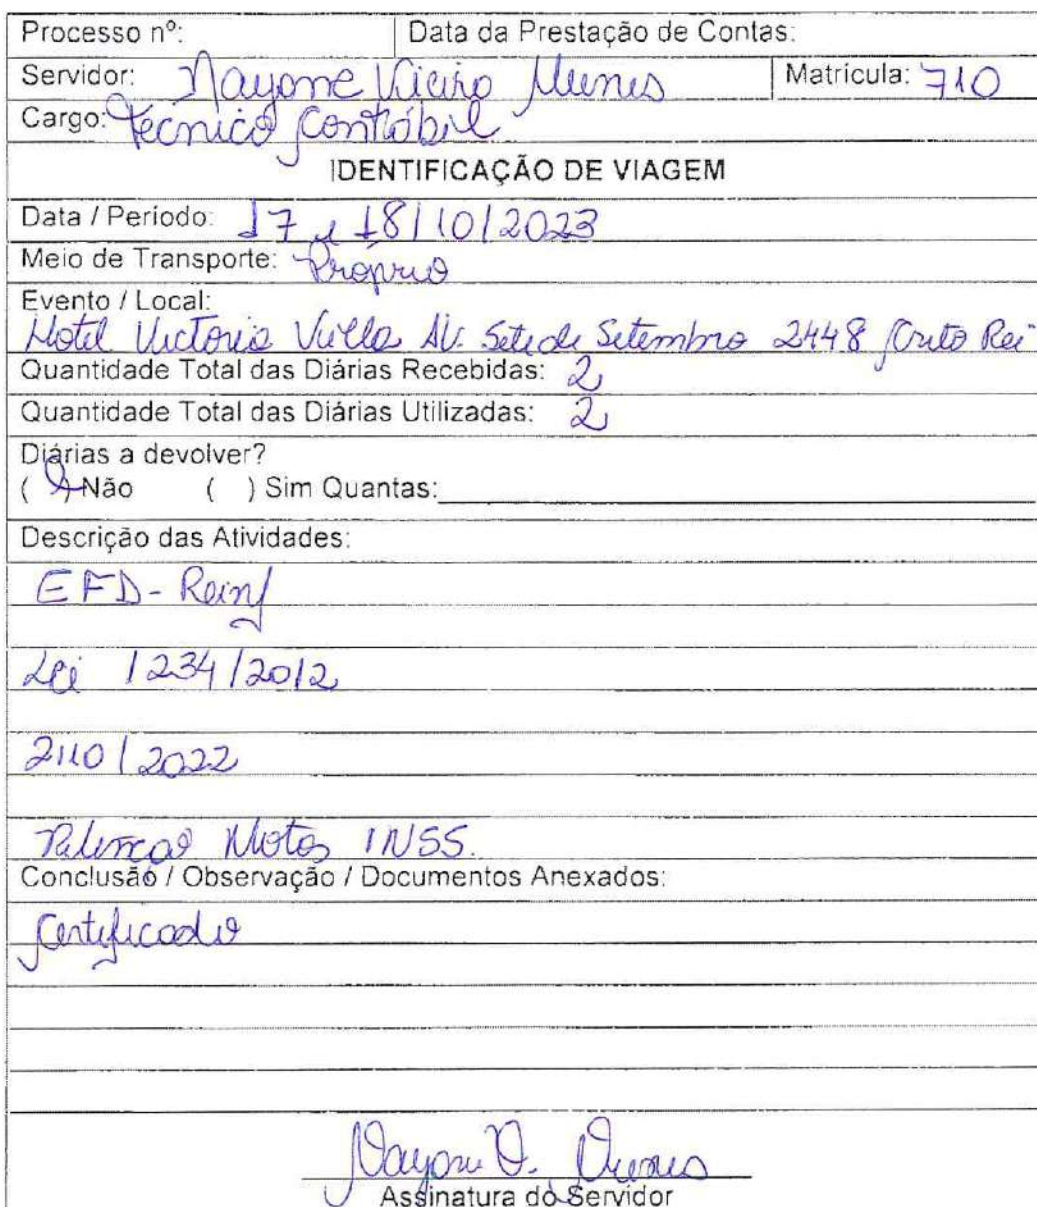 Processo nº: Data da Prestação de Contas:
Servidor: Nayane Vieira Nunes Matrícula: 710
Cargo: Técnico Contábil
IDENTIFICAÇÃO DE VIAGEM
Data / Período: 17 e 18/10/2023
Meio de Transporte: Próprio
Evento / Local:
Hotel Victoria Villa Av. Sete de Setembro 2448 Cristo Rei
Quantidade Total das Diárias Recebidas: 2
Quantidade Total das Diárias Utilizadas: 2
Diárias a devolver?
( ) Não ( ) Sim Quantas:
Descrição das Atividades:
EFD-Reinf
Lei 1234/2012
2110/2022
Retenção Notas INSS.
Conclusão / Observação / Documentos Anexados:
Certificado
Nayane V. Nunes
Assinatura do Servidor